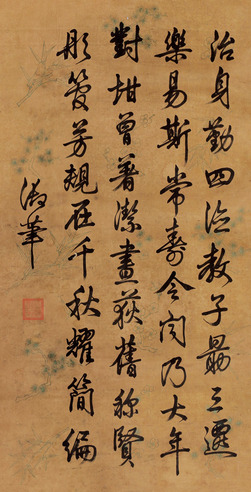 治身勤四德教子勗三遷
樂易斯常壽令聞乃大年
對坩曾著潔畫荻舊稱賢
彤管芳規在千秋耀簡編
御筆